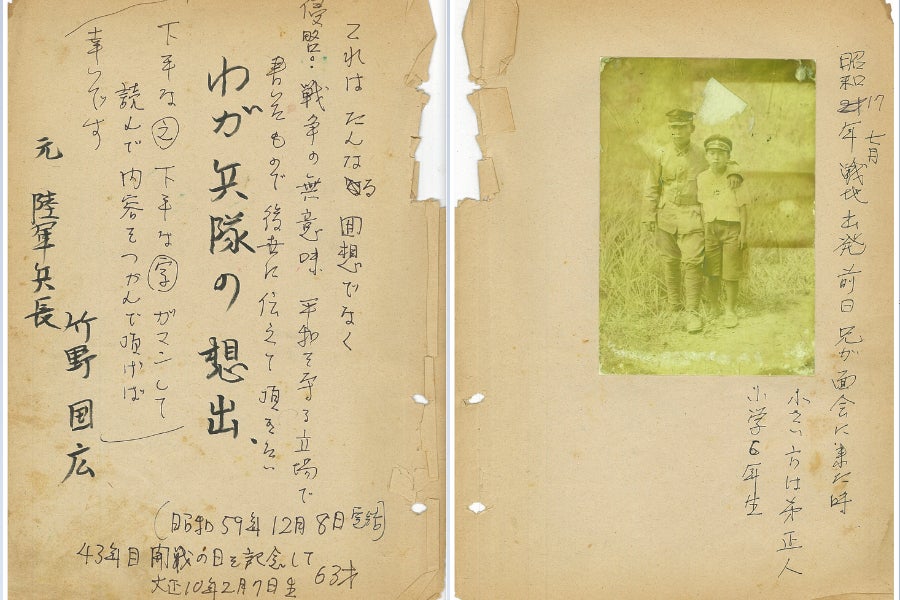 昭和17年七月戦地出発前日兄が面会に来た時
小さい方は弟正人
小学6年生
これはたんなる回想でなく
侵略・戦争の無意味 平和を守る立場で
書いたもので後世に伝えて頂きたい
わが兵隊の想出、
下手な文 下手な字 ガマンして
読んで内容をつかんで頂けば
幸いです
元 陸軍兵長
竹野 国広
(昭和59年12月8日完結)
43年目 開戦の日を記念して
大正10年2月7日生 63才